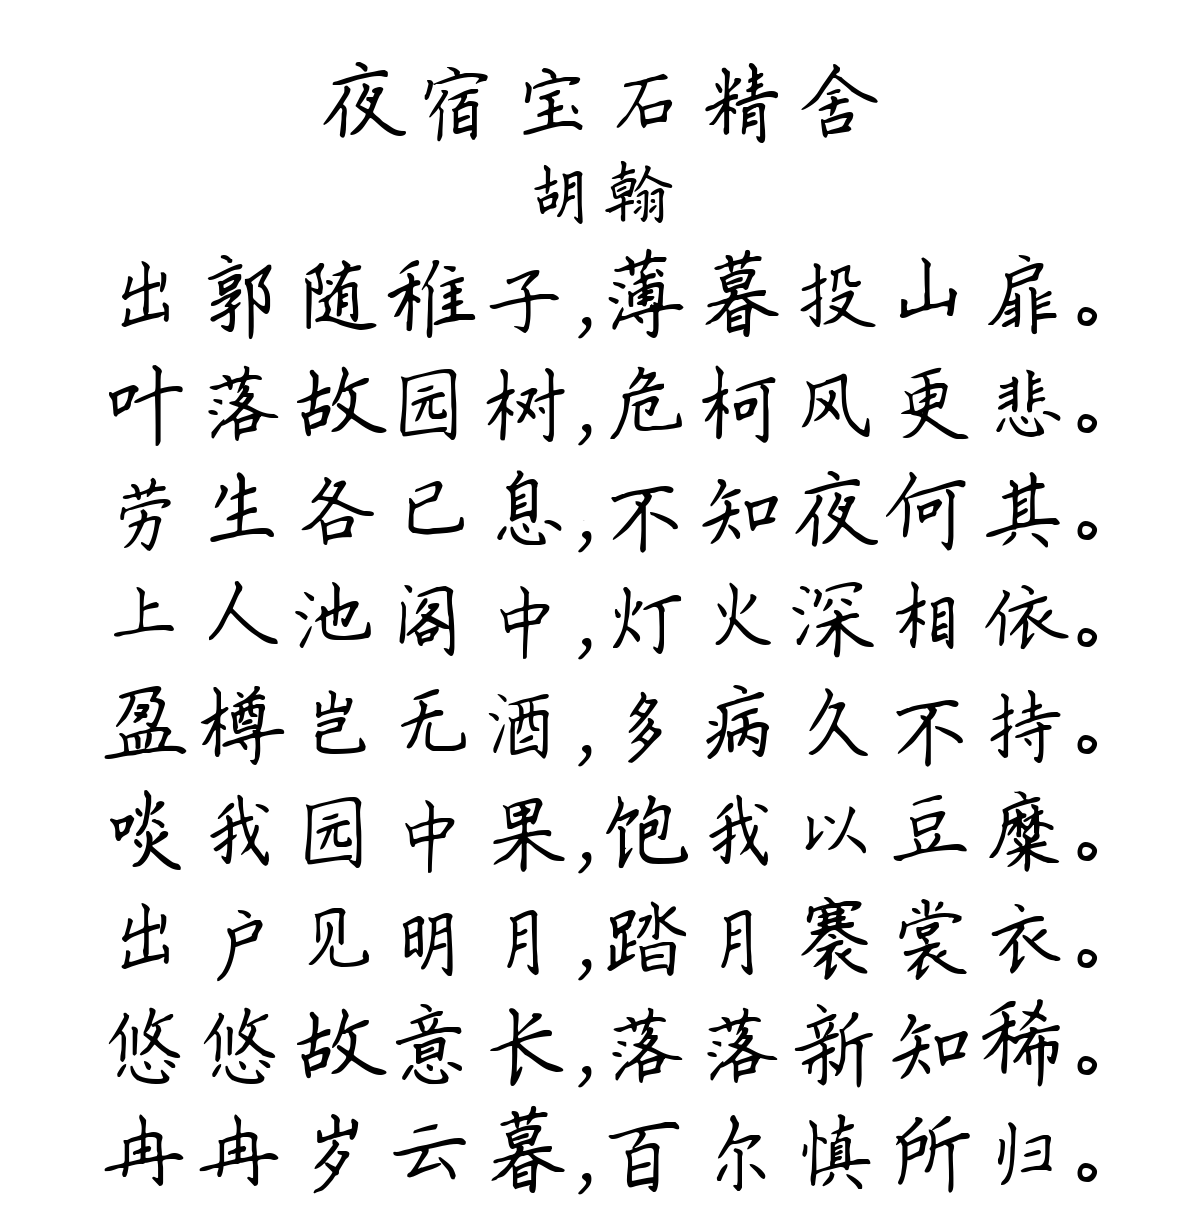 夜宿宝石精舍
胡翰
出郭随稚子,薄暮投山扉。
叶落故园树,危柯风更悲。
劳生各已息,不知夜何其。
上人池阁中,灯火深相依。
盈樽岂无酒,多病久不持。
啖我园中果,饱我以豆糜。
出户见明月,踏月褰裳衣。
悠悠故意长,落落新知稀。
冉冉岁云暮,百尔慎所归。